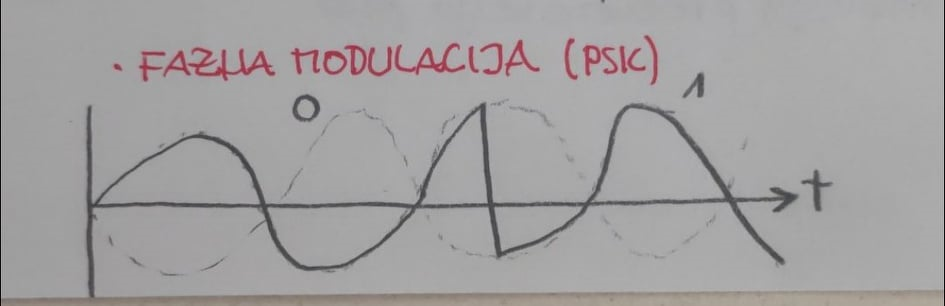 · FAZNA MODULACIJA (PSK)
0
1
t